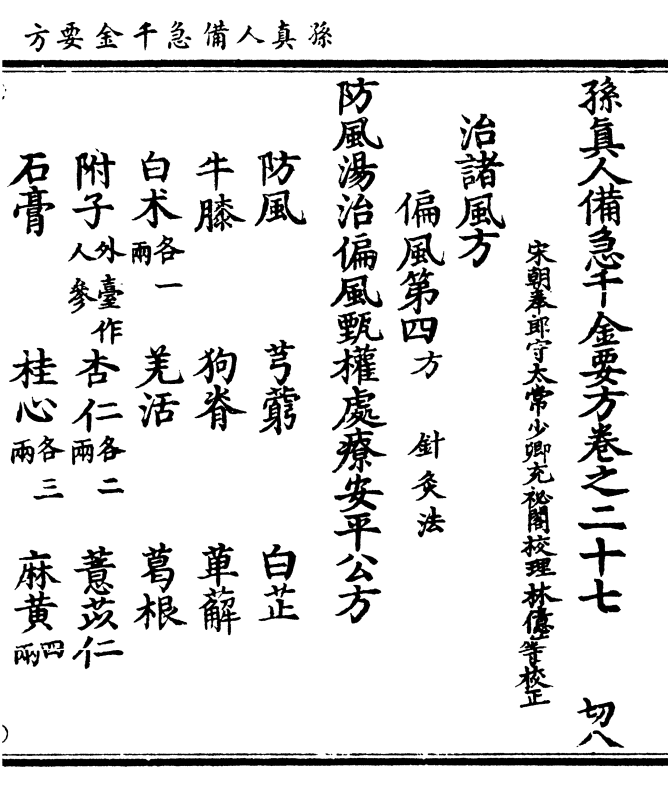 孫真人備急千金要方
孫眞人備急千金要方卷之二十七 切八
宋朝奉郎守太常少卿充祕閣校理林億等校正
治諸風方
偏風第四 方 針灸法
防風湯治偏風甄權處療安平公方
防風 芎藭 白芷
牛膝 狗脊 萆薢
白朮 各一兩 羌活 葛根
附子 外臺作人參 杏仁 各二兩 薏苡仁
石膏 桂心 各三兩 麻黃 四兩